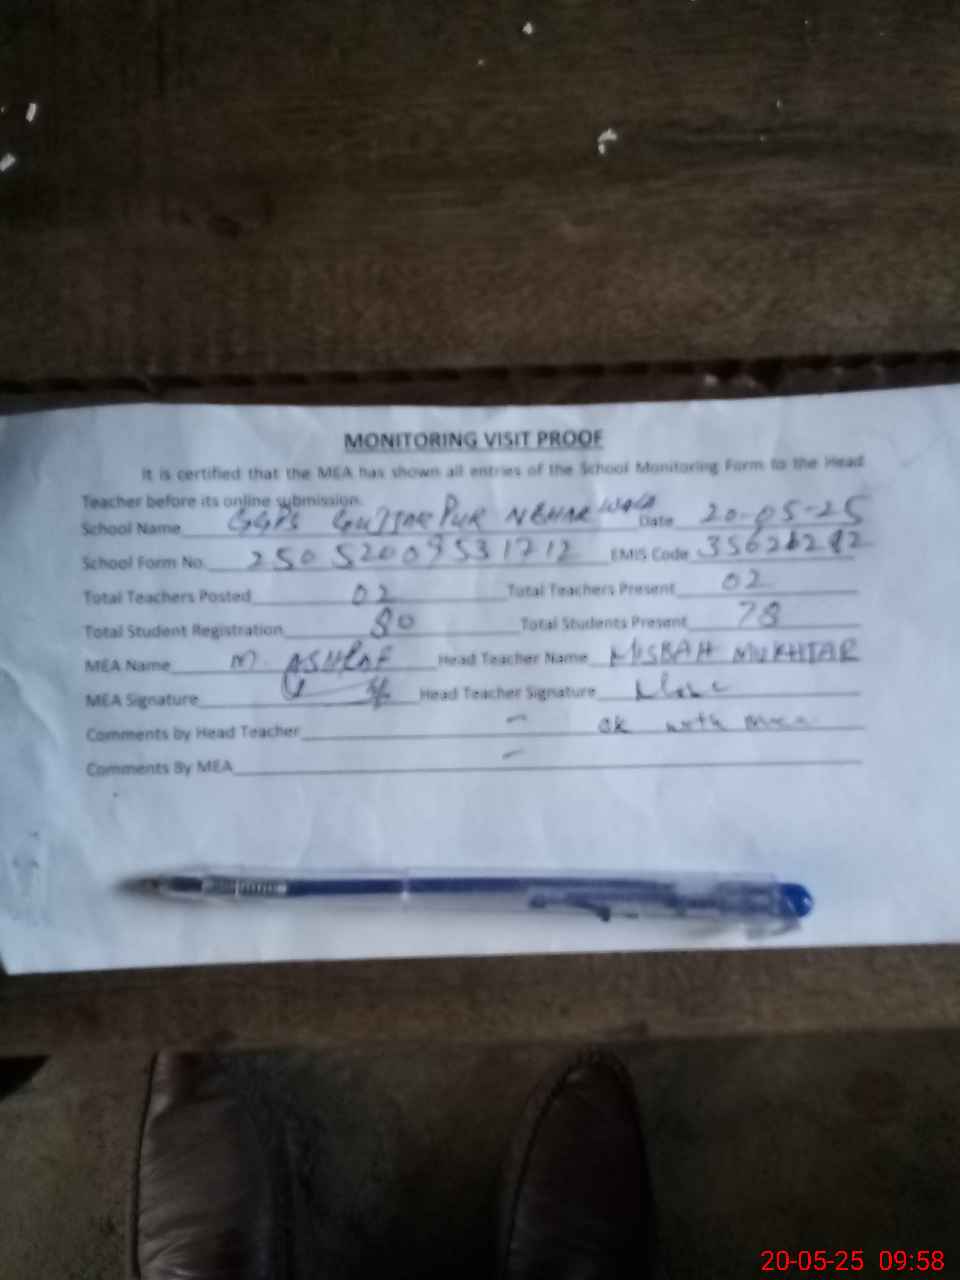 MONITORING VISIT PROOF
It is certified that the MEA has shown all entries of the School Monitoring Form to the Head
Teacher before its online submission.
School Name GGPS GUJJARPUR NEHAR WALA Date 20-05-25
School Form No. EMIS Code
Total Teachers Posted 02 Total Teachers Present 02
Total Student Registration 80 Total Students Present 78
MEA Name M. ASHRAF Head Teacher Name MISBAH MUKHTAR
MEA Signature Head Teacher Signature
Comments by Head Teacher - ok with
Comments By MEA -
20-05-25 09:58